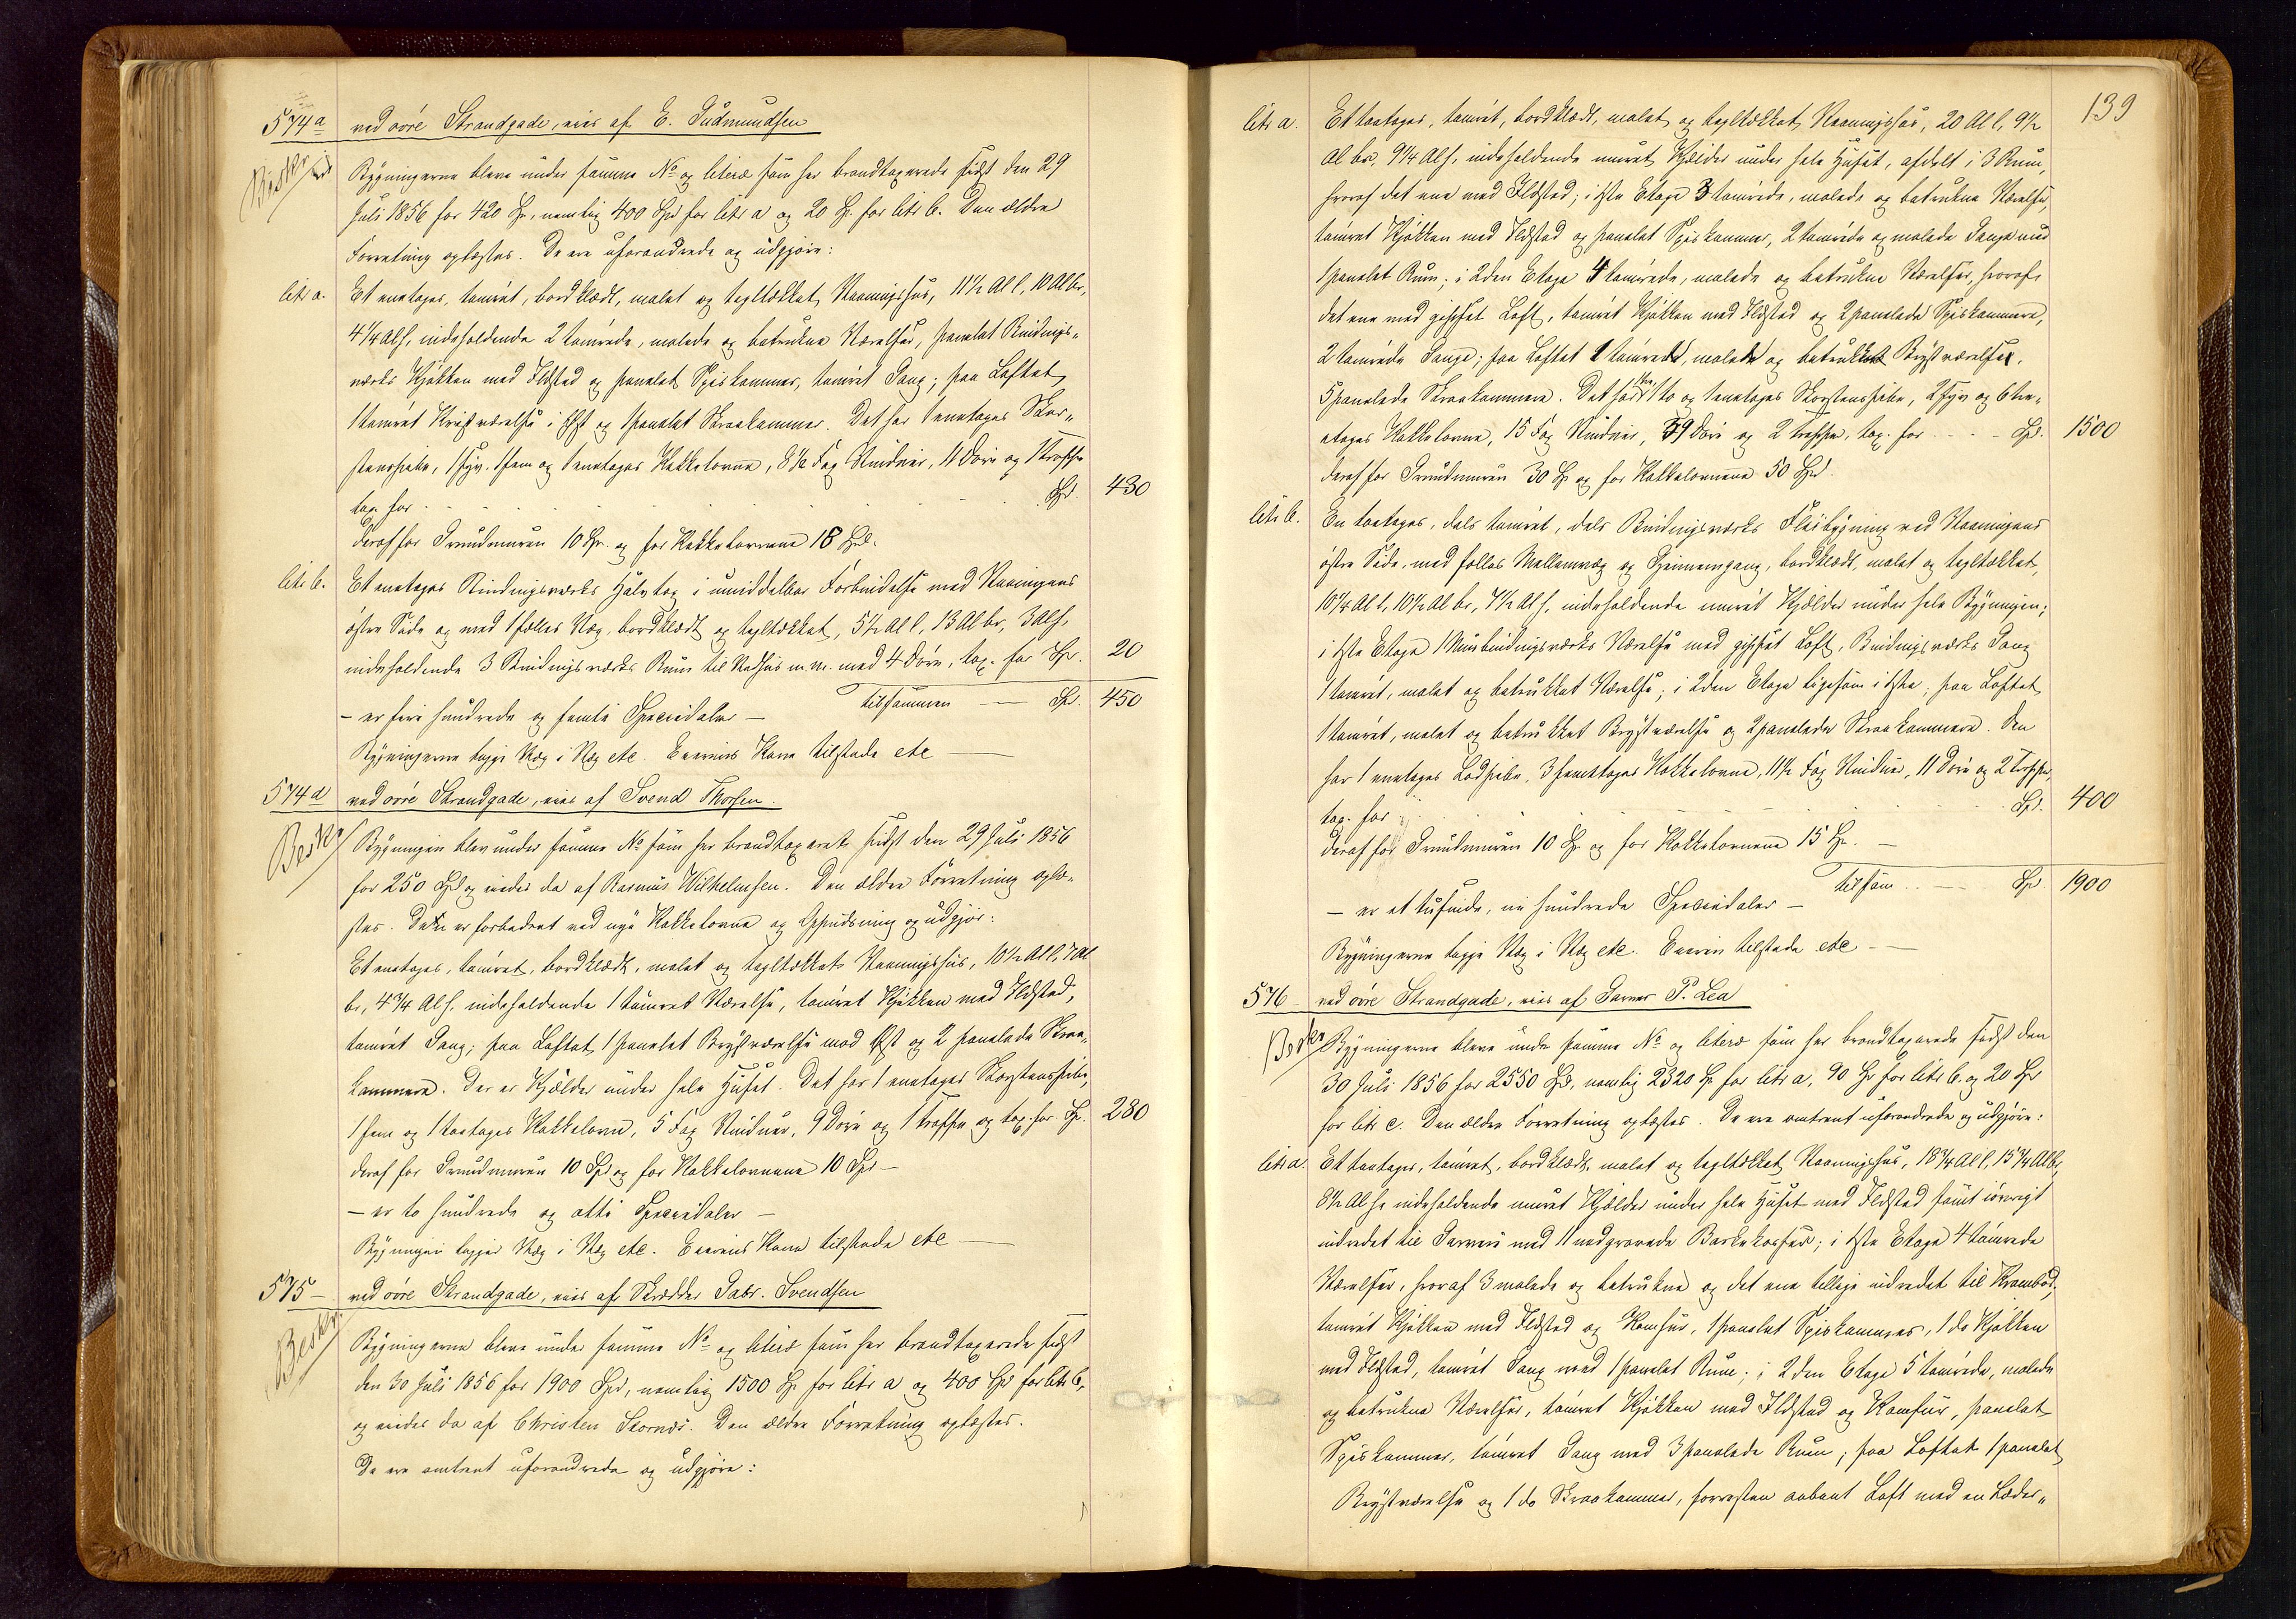 574a ved øvre Strandgade, eies af E. Gudmundsen
Beskr
Bygningerne bleve under samme No og literæ som her brandtaxerede sidst den 29
Juli 1856 for 420 Sp., nemlig 400 Spd for litr a og 20 Sp. for litr b. Den ældre
Forretning oplæstes. De ere uforandrede og udgjøre:
litr a. Et enetages, tømret, bordklædt, malet og tegltækket Vaaningshus, 11½ Al l, 10 Al br,
4¼ Al h, indeholdende 2 tømrede, malede og betrukne Værelser, panelet Bindings-
værks Kjøkken med Ildsted og panelet Spiskammer, tømret Gang; paa Loftet
1 tømret Kvistværelse i Øst og 1 panelet Skraakammer. Det har 1 enetages Skor-
stenspibe, 1 fyr. 1 fem og 1 enetages Kakkelovne, 8½ Fag Vinduer, 11 Døre og 1 Trappe
tax. for . . . Spd. 430
deraf for Grundmuren 10 Sp. og for Kakkelovnene 18 Spd.
litr b. Et enetages Bindingsværks Halvtag i umiddelbar Forbindelse med Vaaningens
østre Side og med 1 fælles Væg, bordklædt og tegltækket, 5½ Al l, 13 Al br, 3 Al h,
indeholdende 3 Bindingsværks Rum til Vedhus m.m. med 4 Døre, tax. for Sp. 20
tilsammen — Sp. 450
— er fire hundrede og femti Speciedaler —
Bygningerne ligge Væg i Væg etc. Eierens Kone tilstede etc —
574d ved øvre Strandgade, eies af Svend Thorsen.
Beskr
Bygningen blev under samme No som her brandtaxeret sidst den 29 Juli 1856
for 250 Spd og eiedes da af Rasmus Wilhelmsen. Den ældre Forretning oplæ-
stes. Den er forbedret ved nye Kakkelovne og Oppudsning og udgjør:
Et enetages, tømret, bordklædt, malet og tegltækket Vaaningshus, 10½ Al l, 7 Al
br, 4¾ Al h, indeholdende 1 tømret Værelse, tømret Kjøkken med Ildsted,
tømret Gang; paa Loftet 1 panelet Brystværelse mod Øst og 2 panelede Skraa-
kammere. Der er Kjælder under hele Huset. Det har 1 enetages Skorstenspibe,
1 fem og 1 toetages Kakkelovn, 5 Fag Vinduer, 9 Døre og 1 Trappe og tax. for Sp. 280
deraf for Grundmuren 10 Spd og for Kakkelovnene 10 Spd —
— er to hundrede og otti Speciedaler —
Bygningen ligger Væg i Væg etc. Eierens Kone tilstede etc —
575 — ved øvre Strandgade, eies af Skrædder Gabr. Svendsen
Beskr.
Bygningerne bleve under samme No og literæ som her brandtaxerede sidst
den 30 Juli 1856 for 1900 Spd, nemlig 1500 Sp for litr a og 400 Spd for litr b,
og eiedes da af Christen Stornæs. Den ældre Forretning oplæstes.
De ere omtrent uforandrede og udgjøre:
139
litr a. Et toetages, tømret, bordklædt, malet og tegltækket Vaaningshus, 20 Al l, 9½
Al br, 9¼ Al h, indeholdende muret Kjælder under hele Huset, afdelt i 3 Rum,
hvoraf det ene med Ildsted; i 1ste Etage 3 tømrede, malede og betrukne Værelser,
tømret Kjøkken med Ildsted og panelet Spiskammer, 2 tømrede og malede Gange med
1 panelet Rum; i 2den Etage 4 tømrede, malede og betrukne Værelser, hvoraf
det ene med gipset Loft, tømret Kjøkken med Ildsted og 2 panelede Spiskammere,
2 tømrede Gange; paa Loftet 1 tømret, malet og betrukket Brystværelse,
5 panelede Skraakammere. Det har 1 to og 1 enetages Skorstenspibe, 2 fyr og 6 tre-
etages Kakkelovne, 15 Fag Vinduer, 39 Døre og 2 Trapper, tax. for . . . Spd. 1500
deraf for Grundmuren 30 Sp og for Kakkelovnene 50 Spd.
litr b. En toetages, dels tømret, dels Bindingsværks Fløibygning ved Vaaningens
østre Side, med fælles Mellemvæg og Gjennemgang, bordklædt, malet og tegltækket,
10¼ Al l, 10½ Al br, 7½ Al h, indeholdende muret Kjælder under hele Bygningen;
i 1ste Etage 1 Murbindingsværks Værelse med gipset Loft, Bindingsværks Gang
1 tømret, malet og betrukket Værelse; i 2den Etage ligesom i 1ste; paa Loftet
1 tømret, malet og betrukket Brystværelse og 2 panelede Skraakammere. Den
har 1 enetages Lodpibe, 3 femetages Kakkelovne, 11½ Fag Vinduer, 11 Døre og 2 Trapper,
tax. for . . . Spd. 400
deraf for Grundmuren 10 Sp og for Kakkelovnene 15 Sp. —
tilsam . . — Sp. 1900
— er et tusinde, ni hundrede Speciedaler —
Bygningerne ligge Væg i Væg etc. Eieren tilstede etc —
576 — ved øvre Strandgade, eies af Garver P. Lea
Beskr
Bygningerne bleve under samme No og literæ som her brandtaxerede sidst den
30 Juli 1856 for 2550 Spd, nemlig 2320 Sp for litr a, 90 Sp for litr b. og 20 Sp
for litr c. Den ældre Forretning oplæstes. De ere omtrent uforandrede og udgjøre:
litr a. Et toetages, tømret, bordklædt, malet og tegltækket Vaaningshus, 18¾ Al l, 15¾ Al br,
8½ Al h, indeholdende muret Kjælder under hele Huset med Ildsted samt iøvrigt
indredet til Garveri med 11 nedgravede Barkekar; i 1ste Etage 4 tømrede
Værelser, hvoraf 3 malede og betrukne og det ene tillige indredet til Krambod,
tømret Kjøkken med Ildsted og Komfur, 1 panelet Spiskammer, 1 do Kjøkken
med Ildsted, tømret Gang med 1 panelet Rum; i 2den Etage 5 tømrede, malede
og betrukne Værelser, tømret Kjøkken med Ildsted og Komfur, panelet
Spiskammer, tømret Gang med 3 panelede Rum; paa Loftet 1 panelet
Brystværelse og 1 do Skraakammer, forresten aabent Loft med en Læder-